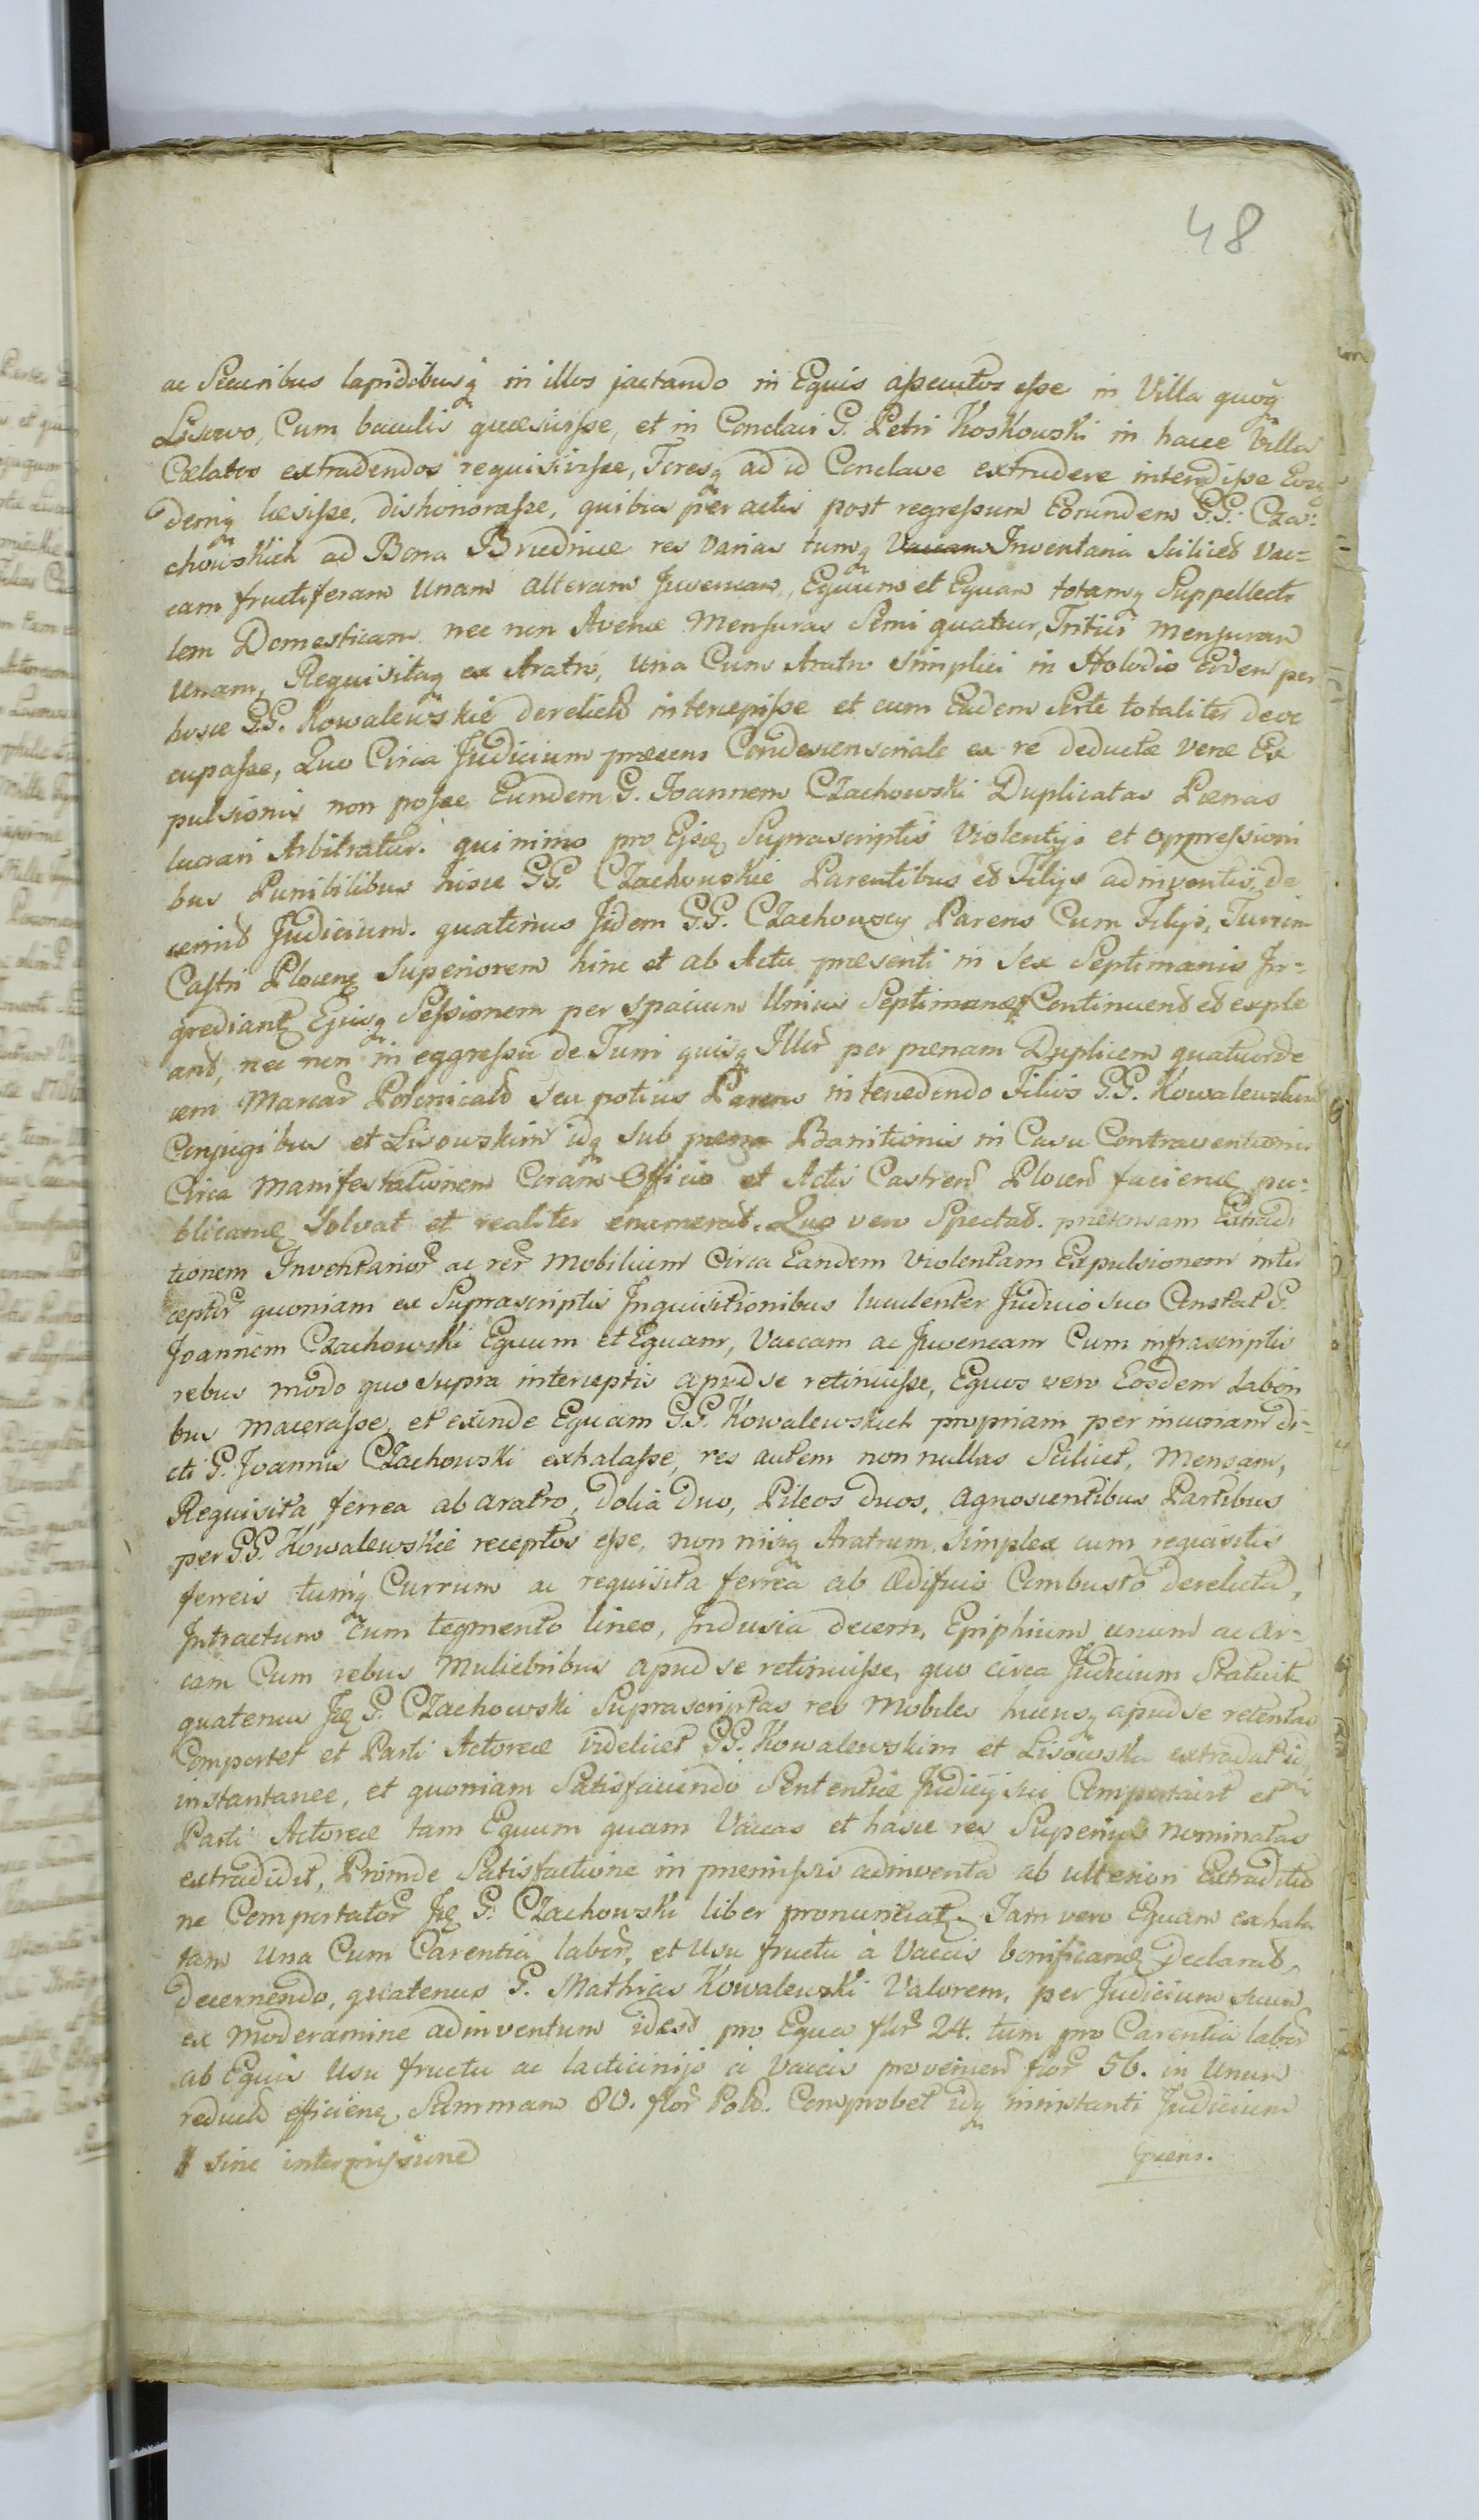 48
ac Securibus lapidibusq in illos jactando in Equis assecutos esse in Villa quoq
Lisowo, Cum baculis quæsivisse, et in Conclavi G. Petri Koskowski in hacce Villa
Cælatos extradendos requisivisse, Foresq ad id Conclave extrudere intendisse Eos
demq læsisse, dishonorasse, quibus per actis post regressum Eorundem G.G. Cza:
chowskich ad Bona Brudnice res varias tumq Inventaria scilicet vac=
cam fructiferam Unam alteram Juvencam, Equum et Equam totamq Suppellecti
lem Domesticam nec non Avenæ Mensuras Semi quatuor, Tritici mensuram
Unam, Requisitaq ex Aratro, Una Cum Aratro simplici in Alodio Eodem per
hosce GG. Kowalewskie derelict intercepisse et eum Eadem sorte totaliter deoc
cupasse, Quo Circa Judicium præsens Condescensoriale ex re deductæ veræ Ex
pulsionis non posse Eundem G. Joannem Czachowski Duplicatas Pænas
lucrari Arbitratur. quinimo pro Ejsq Suprascriptis Violentijs et oppressioni
bus Punibilibus hisce GG. Czachowskie Parentibus et Filijs adinventis, de
cernit Judicium. quatenus Jidem G.G. Czachowscy Parens Cum Filijs, Turrim
Castri Plocen Superiorem hinc et ab Actu præsenti in sex Septimanis In=
grediant Ejusq Sessionem per spacium Unius Septimanæ Continuent et exple
ant, nec non in eggressu de Turri quisq Illor per pænam Duplicem quatuorde
cem Marcar Polonicalt seu potius Parens intercedendo Filios G.G. Kowalewskim
Conjugibus et Lisowskim idq sub pæna Banitionis in Casu Contraventionis
Circa Manifestationem Coram Officio et Actis Castren Plocen faciend pu=
blicand solvat et realiter enumerat. Quo vero Spectat. prætensam Extradi
tionem Inventarior ac rer Mobilium Circa Eandem violentam Expulsionem inter
ceptor quoniam ex Suprascriptis Inquisitionibus luculenter Judicio suo Constat G.
Joannem Czachowski Equum et Equam, Vaccam ac Juvencam Cum infrascriptis
rebus modo quo supra interceptis apud se retinuisse, Equos vero Eosdem Labori
bus macerasse, et exinde Equam G.G. Kowalewskich propriam per incuriam di=
cti G. Joannis Czachowski exhalasse, res autem non nullas Scilicet, Mensam,
Requisita ferrea ab aratro, Dolia Duo, Pileos Duos, agnoscentibus Partibus
per GG. Kowalewskie receptos esse, non nisiq Aratrum simplex cum requisitis
ferreis tumq Currum ac requisita ferrea ab Ædificio Combusto derelicta,
Intractum Cum tegmento lineo, Indusia decem, Epiphium unum ac ar=
cam Cum rebus Muliebribus apud se retinuisse, quo circa Judicium Statuit
quatenus Jq G. Czachowski Suprascriptas res Mobiles hucusq apud se retentas
Comportet et Parti Actoreæ videlicet GG. Kowalewskim et Lisowska extradat id,
instantanee, et quoniam Satisfaciendo Sententiæ Judicij sui Comportavit et
Parti Actoreæ tam Equum quam Vaccas et hasce res Superius nominatas
extradidit, Proinde Satisfactione in præmissis adinventa ab ulteriori Extraditio
ne Comportator Jq G. Czachowski liber pronuntiat. Jam vero Equam exhala
tam Una Cum Carentia labor, et Usu fructu à Vaccis bonificand Declarat,
decernendo, quatenus G. Mathias Kowalewski Valorem, per Judicium suum
ex Moderamine adinventum idest pro Equa flor 24. tum pro Carentia labor
ab Equis Usu fructu ac lacticinijs à Vaccis provenien flor 56. in Unum
reduct efficienq Summam 80. flor Pold. Comprobet idq ninstanti Judicium
sine intermissione
præns.